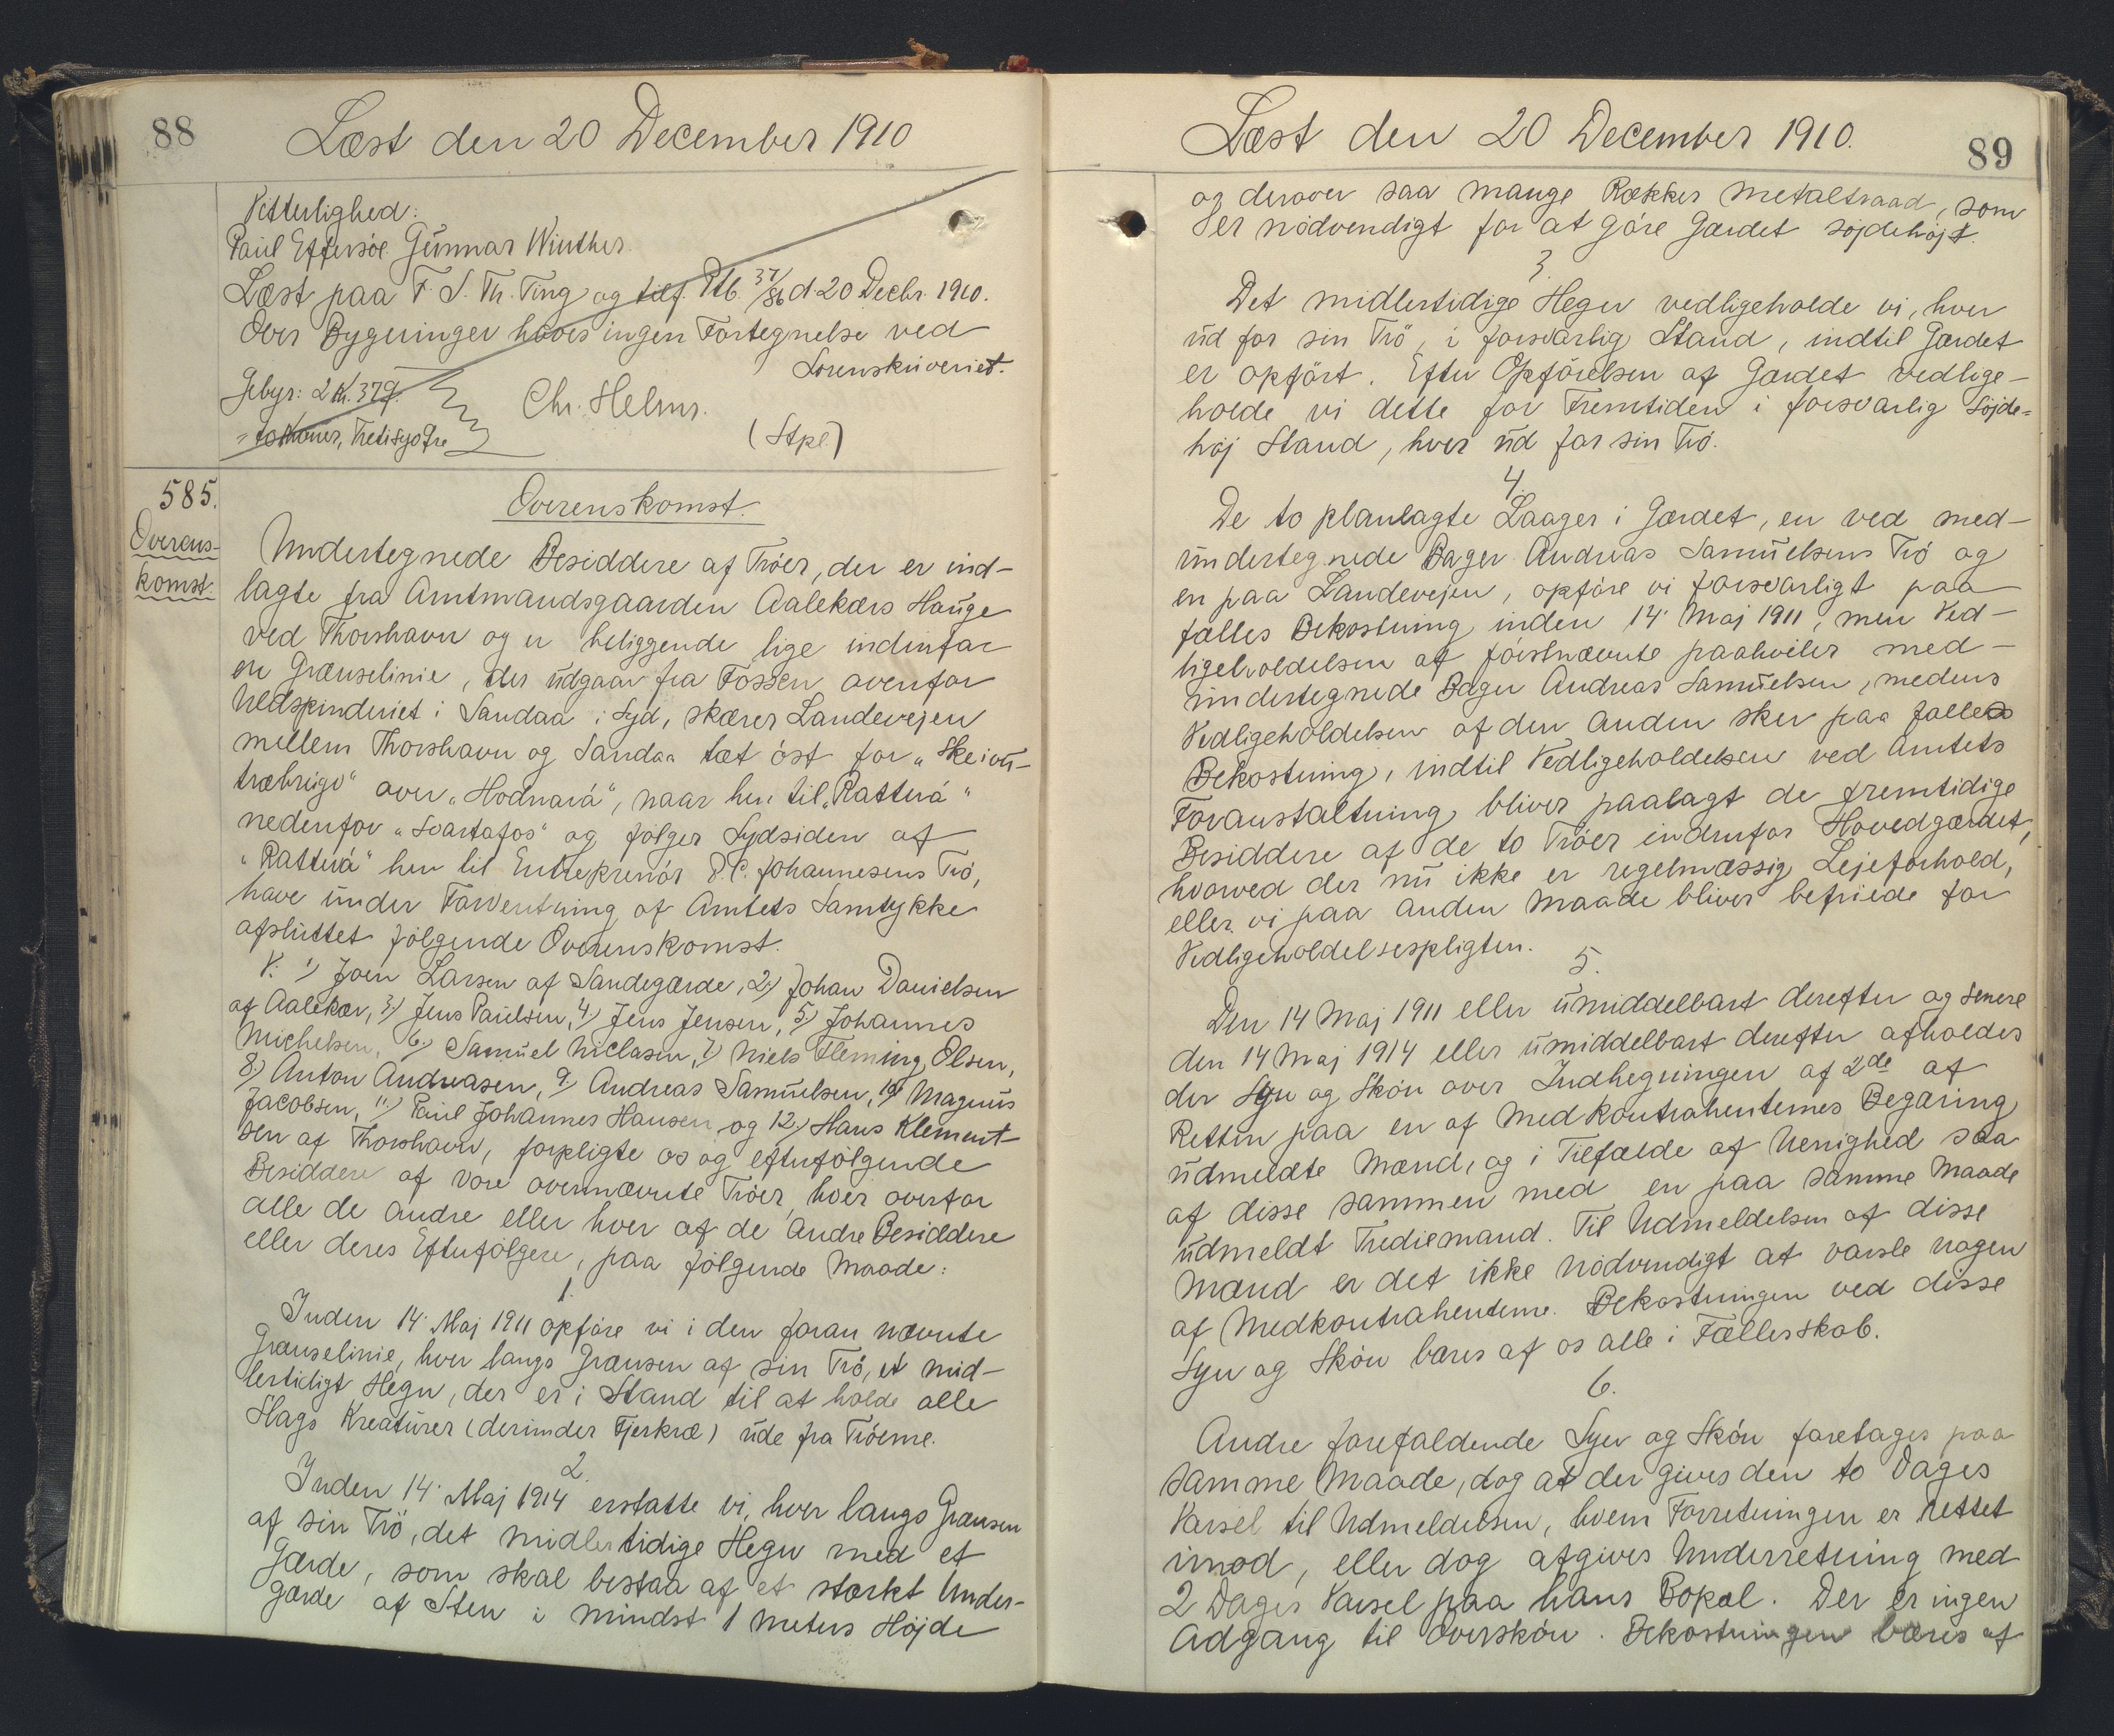 88
Læst den 20 December 1910
Vitterlighed:
Paul Effersöe Gunnar Winther.
Læst paa F. S. Th. Ting og tilf. Ptb. 37/86 d. 20 Decbr. 1910.
Over Bygninger haves ingen Fortegnelse ved
Sorenskriveriet.
Gebyr: 2 Kr. 37 Ø.
= to Kroner, Tretisyv Øre
Chr. Helms.
(Stpl)
585.
Overens-
komst.
Overenskomst.
Undertegnede Besiddere af Tröer, der er ind-
lagte fra Amtmandsgaarden Aalekærs Hauge
ved Thorshavn og er beliggende lige indenfor
en Grænselinie, der udgaar fra Fossen ovenfor
Uldspinderiet i Sandaa i Syd, skærer Landevejen
mellem Thorshavn og Sandaa tæt öst for "Skeivu-
træbrigv" over "Hodnaá", naar hen til "Ratturá"
nedenfor "Svartafos" og fölger Sydsiden af
"Ratturá" hen til Entreprenör P. C. Johannesens Trö,
have under Forventning af Amtets Samtykke
afsluttet fölgende Overenskomst.
V. 1) Joen Larsen af Sandegærde, 2.) Johan Danielsen
af Aalekær, 3) Jens Paulsen, 4) Jens Jensen, 5) Johannes
Michelsen, 6.) Samuel Niclasen, 7.) Niels Fleming Olsen,
8.) Anton Andreasen, 9.) Andreas Samuelsen, 10) Magnus
Jacobsen, 11.) Paul Johannes Hansen og 12.) Hans Klement-
sen af Thorshavn, forpligte os og efterfölgende
Besiddere af vore overnævnte Tröer, hver overfor
alle de andre eller hver af de andre Besiddere
eller deres Efterfölgere, paa fölgende Maade:
1.
Inden 14. Maj 1911 opföre vi i den foran nævnte
Grænselinie, hver langs Grænsen af sin Trö, et mid-
lertidigt Hegn, der er i Stand til at holde alle
Slags Kreaturer (derunder Fjerkræ) ude fra Tröerne.
2.
Inden 14. Maj 1914 erstatte vi, hver langs Grænsen
af sin Trö, det midlertidige Hegn med et
Gærde, som skal bestaa af et stærkt Under-
gærde af Sten i mindst 1 meters Höjde
Læst den 20 December 1910.
89
og derover saa mange Rækker Metaltraad, som
er nödvendigt for at göre Gærdet söjdehöjt.
3.
Det midlertidige Hegn vedligeholde vi, hver
ud for sin Trö, i forsvarlig Stand, indtil Gærdet
er opfört. Efter Opförelsen af Gærdet vedlige-
holde vi dette for Fremtiden i forsvarlig Söjde-
höj Stand, hver ud for sin Trö.
4.
De to planlagte Laager i Gærdet, en ved med-
undertegnede Bager Andreas Samuelsens Trö og
en paa Landevejen, opföre vi forsvarligt paa
fælles Bekostning inden 14. Maj 1911, men Ved-
ligeholdelsen af förstnævnte paahviler med-
undertegnede Bager Andreas Samuelsen, medens
Vedligeholdelsen af den anden sker paa fælles
Bekostning, indtil Vedligeholdelsen ved Amtets
Foranstaltning bliver paalagt de fremtidige
Besiddere af de to Tröer indenfor Hovedgærdet,
hvorved der nu ikke er regelmæssig Lejeforhold,
eller vi paa anden Maade bliver befriede for
Vedligeholdelsespligten.
5.
Den 14 Maj 1911 eller umiddelbart derefter og senere
den 14 Maj 1914 eller umiddelbart derefter afholdes
der Syn og Skön over Indhegningen af 2de af
Retten paa en af Medkontrahenternes Begæring
udmeldte Mænd, og i Tilfælde af Uenighed saa
af disse sammen med en paa samme Maade
udmeldt Trediemand. Til Udmeldelsen af disse
Mænd er det ikke nödvendigt at varsle nogen
af Medkontrahenterne. Bekostningen ved disse
Syn og Skön bæres af os alle i Fællesskab.
6.
Andre forefaldende Syn og Skön foretages paa
samme Maade, dog at der gives den to Dages
Varsel til Udmeldelsen, hvem Forretningen er rettet
imod, eller dog afgives Underretning med
2 Dages Varsel paa hans Bopæl. Der er ingen
Adgang til Overskön. Bekostningen bæres af